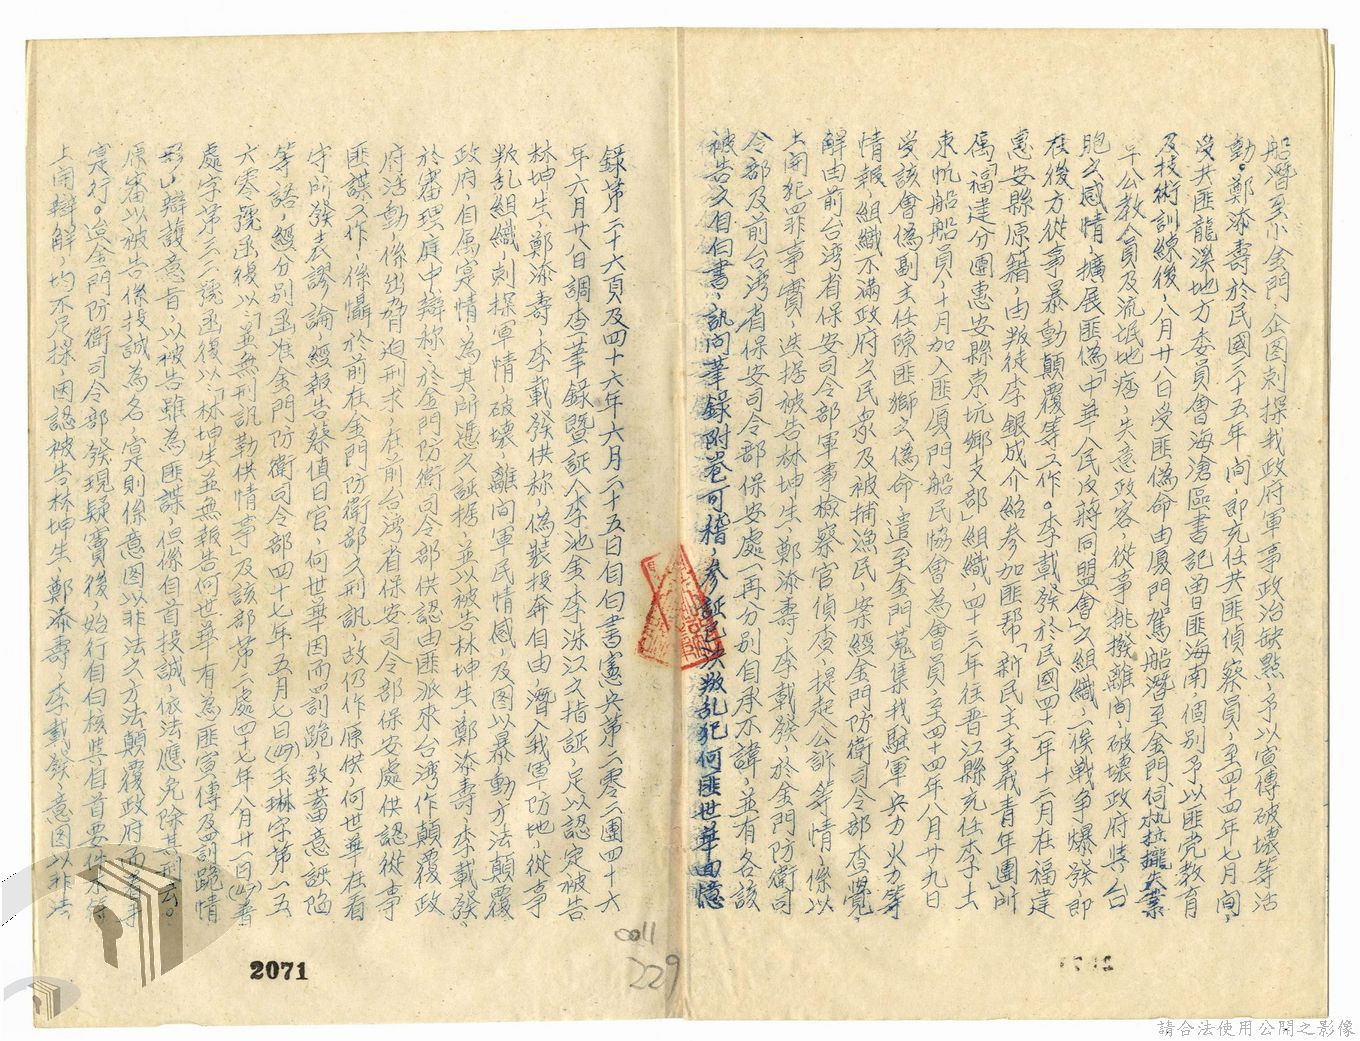 船潛至小金門企图刺探我政府軍事政治缺點,予以宣傳破壞等活
動。鄭添壽於民國三十五年间,即充任共匪偵察員,至四十四年七月间,
受共匪龍溪地方委員會海滄區書記曾匪海南,個別予以匪党教育
及技術訓練後,八月廿八日受匪偽命由厦門駕船潛至金門,伺机拉攏失業
公教人員及流氓地痞,失意政客,從事挑撥離间,破壞政府與台
胞之感情,擴展匪偽「中華人民反蔣同盟會」之組織,一俟戰争爆發,即
在後方從事暴動顛覆等工作。李載發於民國四十一年十二月在福建
惠安縣原籍,由叛徒李銀成介紹參加匪帮「新民主主義青年團」所
属「福建分團惠安縣東坑鄉支部」組織,四十三年往晋江縣充任李土
東帆船船員,十月加入匪厦門船民協會為會員,至四十四年八月廿九日
受該會偽副主任陳匪獅之偽命,遣至金門蒐集我駐軍兵力火力等
情報,組織不滿政府之民众及被捕漁民,案經金門防衛司令部查覺,
解由前台湾省保安司令部軍事檢察官偵查,提起公訴等情,係以
上開犯罪事實,迭據被告林坤生、鄭添壽、李載發,於金門防衛司
令部及前台湾省保安司令部保安處一再分別自承不諱,並有各該
被告之自白書,訊问筆錄附卷可稽,參証已決叛乱犯何匪世華回憶
錄第二十六頁及四十六年六月二十五日自白書憲兵第二零二團四十六
年六月廿八日調查筆錄暨証人李池金李洙江之指証,足以認定被告
林坤生,鄭添壽,李載發供称,偽裝投奔自由,潛入我軍防地,從事
叛乱組織,刺探軍情,破壞,離间軍民情感,及图以暴動方法顛覆
政府,自属实情,為其所憑之証据,並以被告林坤生,鄭添壽,李載發,
於審理庭中辯称,於金門防衛司令部供認由匪派來台湾作顛覆政
府活動,係出脅迫刑求,在前台湾省保安司令部保安處供認從事
匪諜工作,係懾於前在金門防衛部之刑訊,故仍作原供,何世華在看
守所發表謬論,經報告蔡值日官,何世華因而罰跪,致蓄意誣陷
等語,經分別函准金門防衛司令部四十七年五月七日(四七)玉琳字第一五
六零號函復以:「並無刑訊勒供情事」及該部第二處四十七年八月廿一日(四七)書
處字第三三二號函復以「林坤生並無報告何世華有為匪宣傳及罰跪情
形」,辯護意旨,以被告雖為匪諜,但係自首投誠,依法應免除其刑云云。
原審以被告係投誠為名,实則係意图以非法之方法顛覆政府而着手
实行。迨金門防衛司令部發現疑竇後,始行自白核與自首要件不符
上開辯解,均不足採,因認被告林坤生,鄭添壽,李載發,意图以非法
coll
229
2071
請合法使用公開之影像